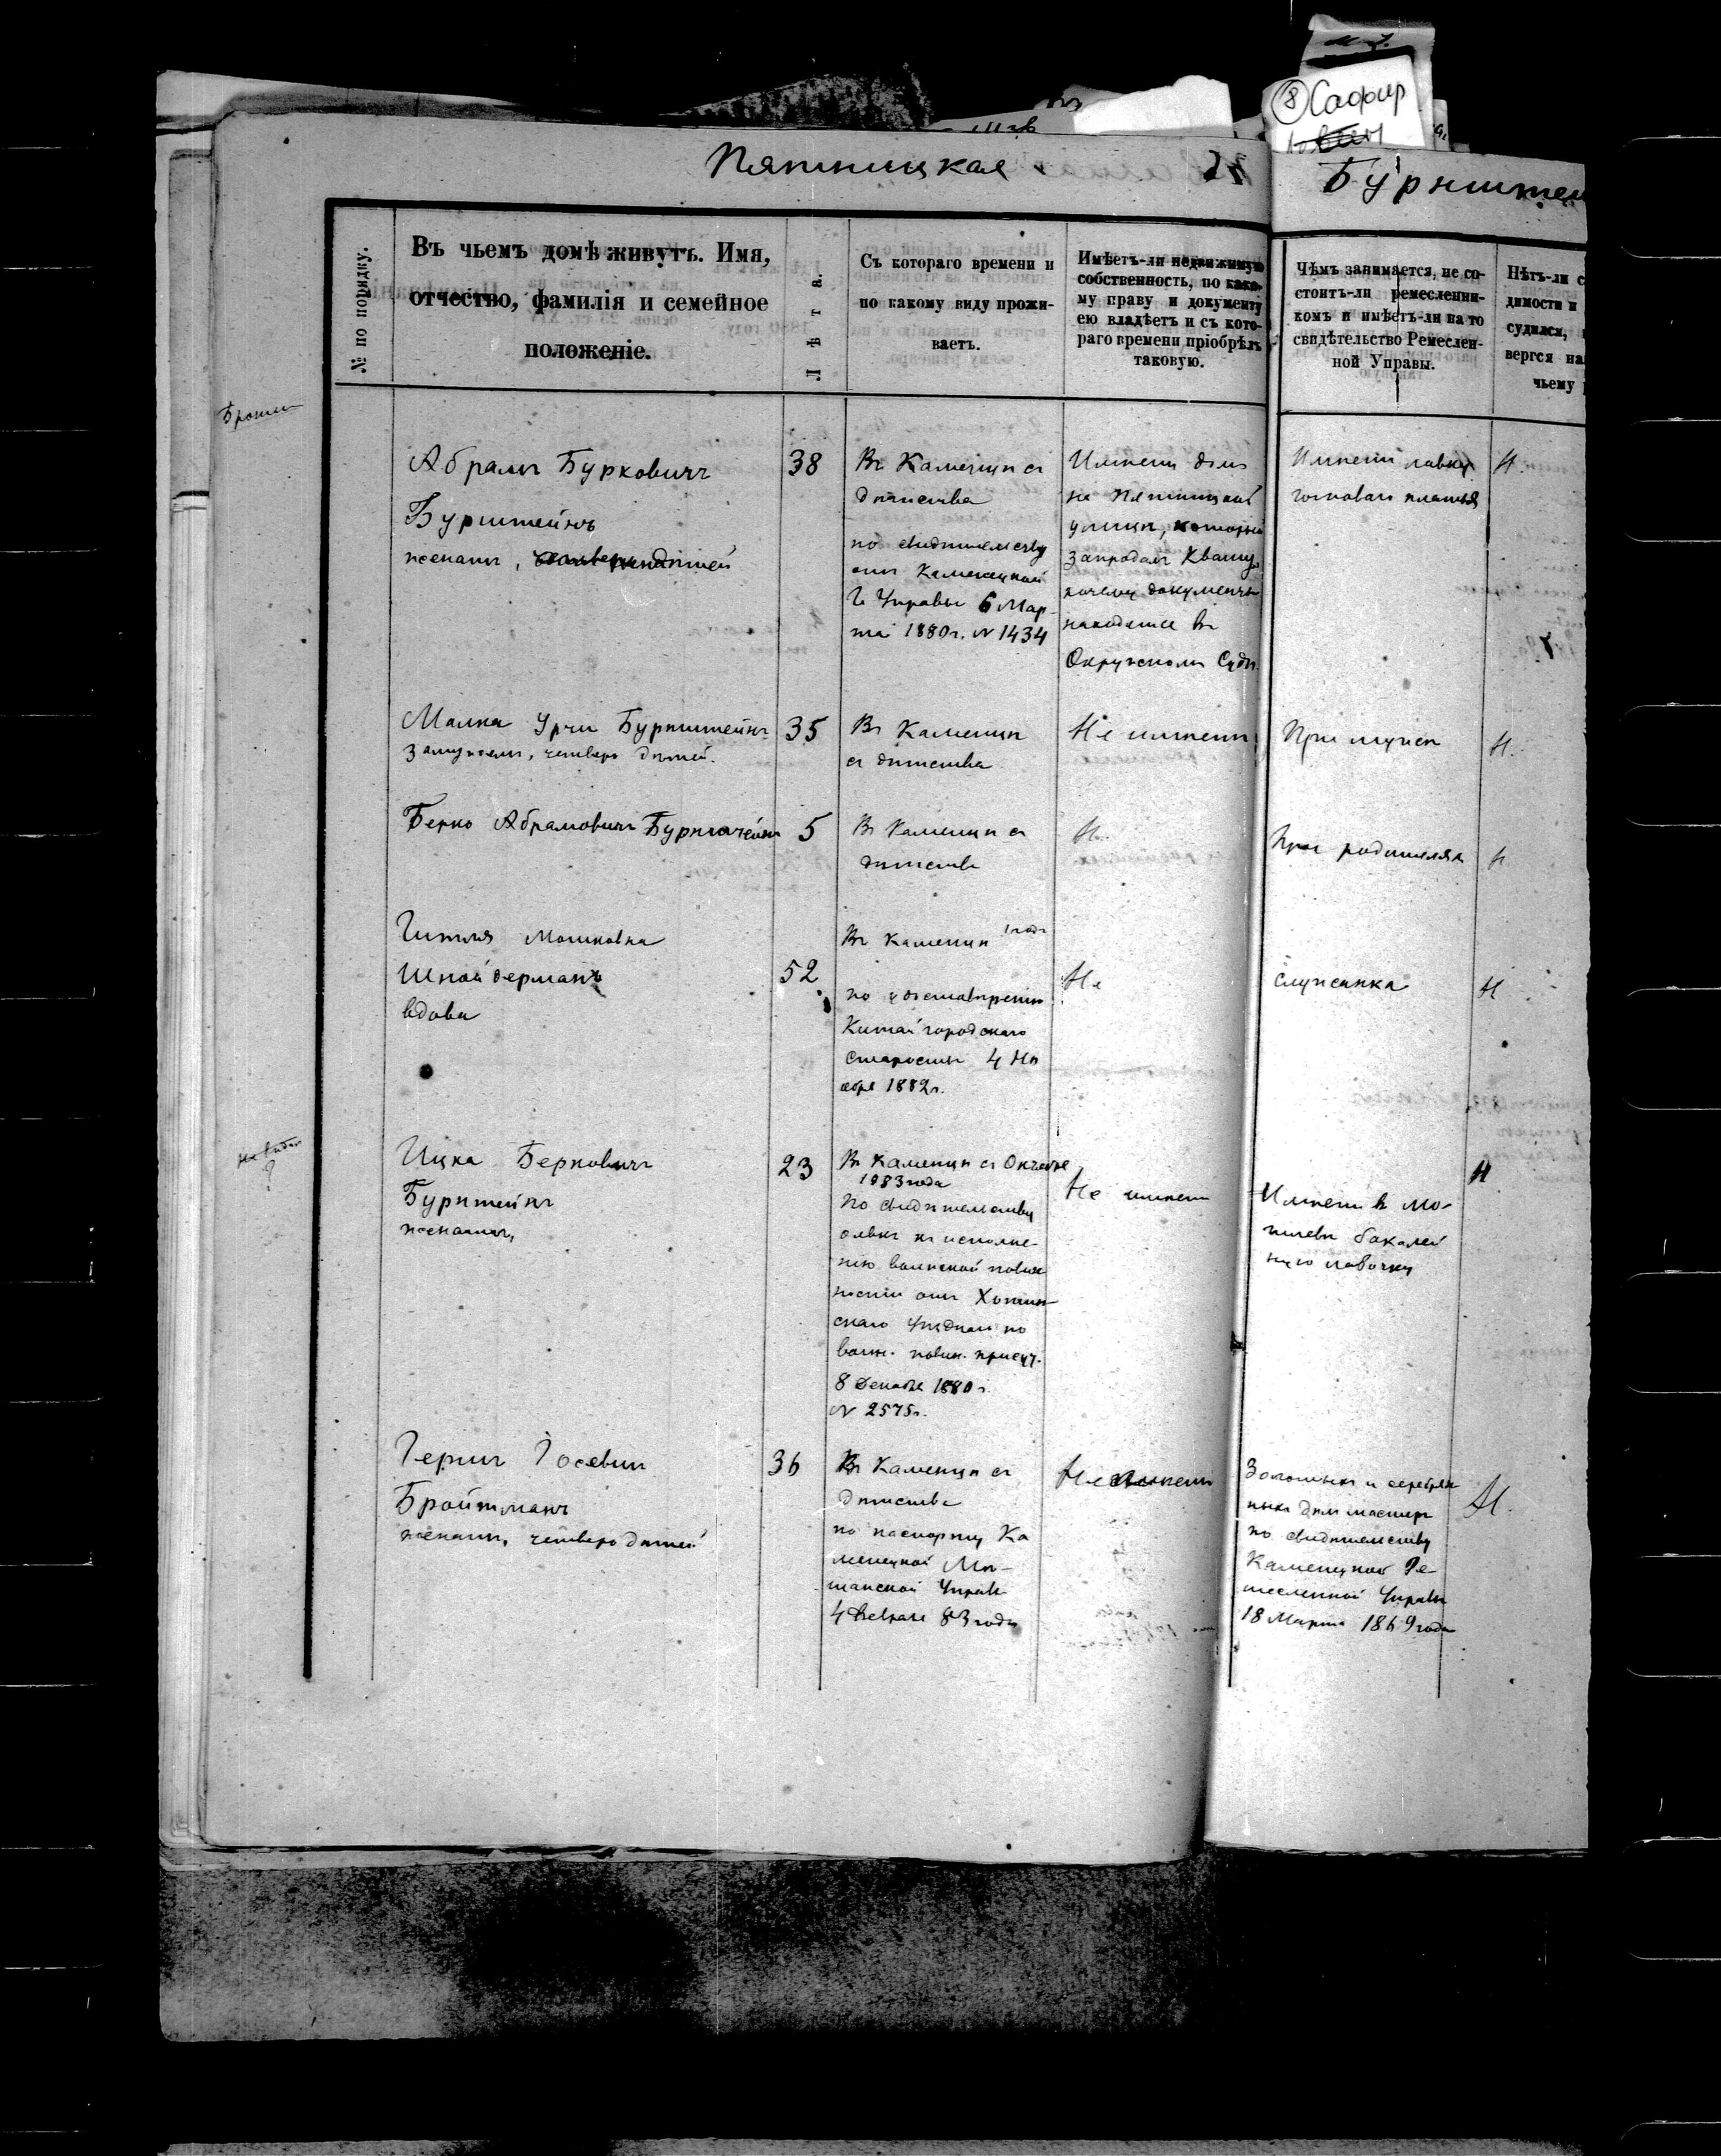 8 Сафир
Пятницкая
Бурнштей
№ по порядку.
Въ чьемъ домѣ живутъ. Имя,
отчество, фамилія и семейное
положеніе.
Лѣта.
Съ котораго времени и
по какому виду прожи-
ваетъ.
Имѣетъ-ли недвижимую
собственность, по како-
му праву и документу
ею владѣетъ и съ кото-
раго времени пріобрѣлъ
таковую.
Чѣмъ занимается, не со-
стоитъ-ли ремесленни-
комъ и имѣетъ-ли на то
свидѣтельство Ремеслен-
ной Управы.
Нѣтъ-ли с
димости и
судился,
вергся на
чьему
Абрамъ Буркович
Бурштейнъ
женатъ, дѣтей
38
Въ Каменцѣ съ
дѣтства
по свидѣтельству
отъ Каменецкой
Г. Управы 6 Мар-
та 1880 г. № 1434
Имѣетъ домъ
на Пятницкой
улицѣ, который
запродалъ
документы
находятся въ
Окружномъ Судѣ.
Имѣетъ лавку
готоваго платья
Н.
Малка Бурнштейнъ
замужемъ, четверо дѣтей.
35
Въ Каменцѣ
съ дѣтства
Не имѣетъ
При мужѣ
Н.
Берко Абрамовичъ Бурнштейнъ
5
Въ Каменцѣ съ
дѣтства
Н.
При родителяхъ
Н
Гитля Мошковна
Шнайдерманъ
вдова
52
Въ Каменцѣ 1 годъ
по удостовѣренію
Китайгородскаго
старосты 4 Но
ября 1882 г.
Не
служанка
Н
Ицка Берковичъ
Бурштейнъ
женатъ,
23
Въ Каменцѣ съ Октября
1883 года
По свидѣтельству
о явкѣ къ исполне-
нію воинской повин
ности отъ Хотин-
скаго Уѣднаго по
воин. повин. присут.
8 Декабря 1880 г.
№ 2575 г.
Не имѣетъ
Имѣетъ въ Мо-
гилевѣ бакалей
ную лавочку
Н
Гершъ Іосевичъ
Бройтманъ
женатъ, четверо дѣтей
36
Въ Каменцѣ съ
дѣтства
по паспорту Ка
менецкой Мѣ-
щанской Управы
4 Января 83 года
Не имѣетъ
Золотыхъ и серебрян
ныхъ дѣлъ мастеръ
по свидѣтельству
Каменецкой Ре-
месленной Управы
18 Марта 1869 года
Н.